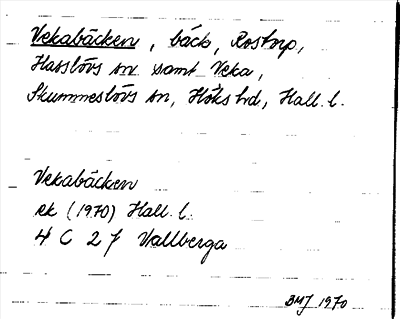 Vekabäcken, bäck, Rostorp,
Hasslövs sn samt Veka,
Skummeslövs sn, Höks hd, Hall. l.
Vekabäcken
ek (1970) Hall. l.
4 C 2 f Vallberga
BMJ 1970